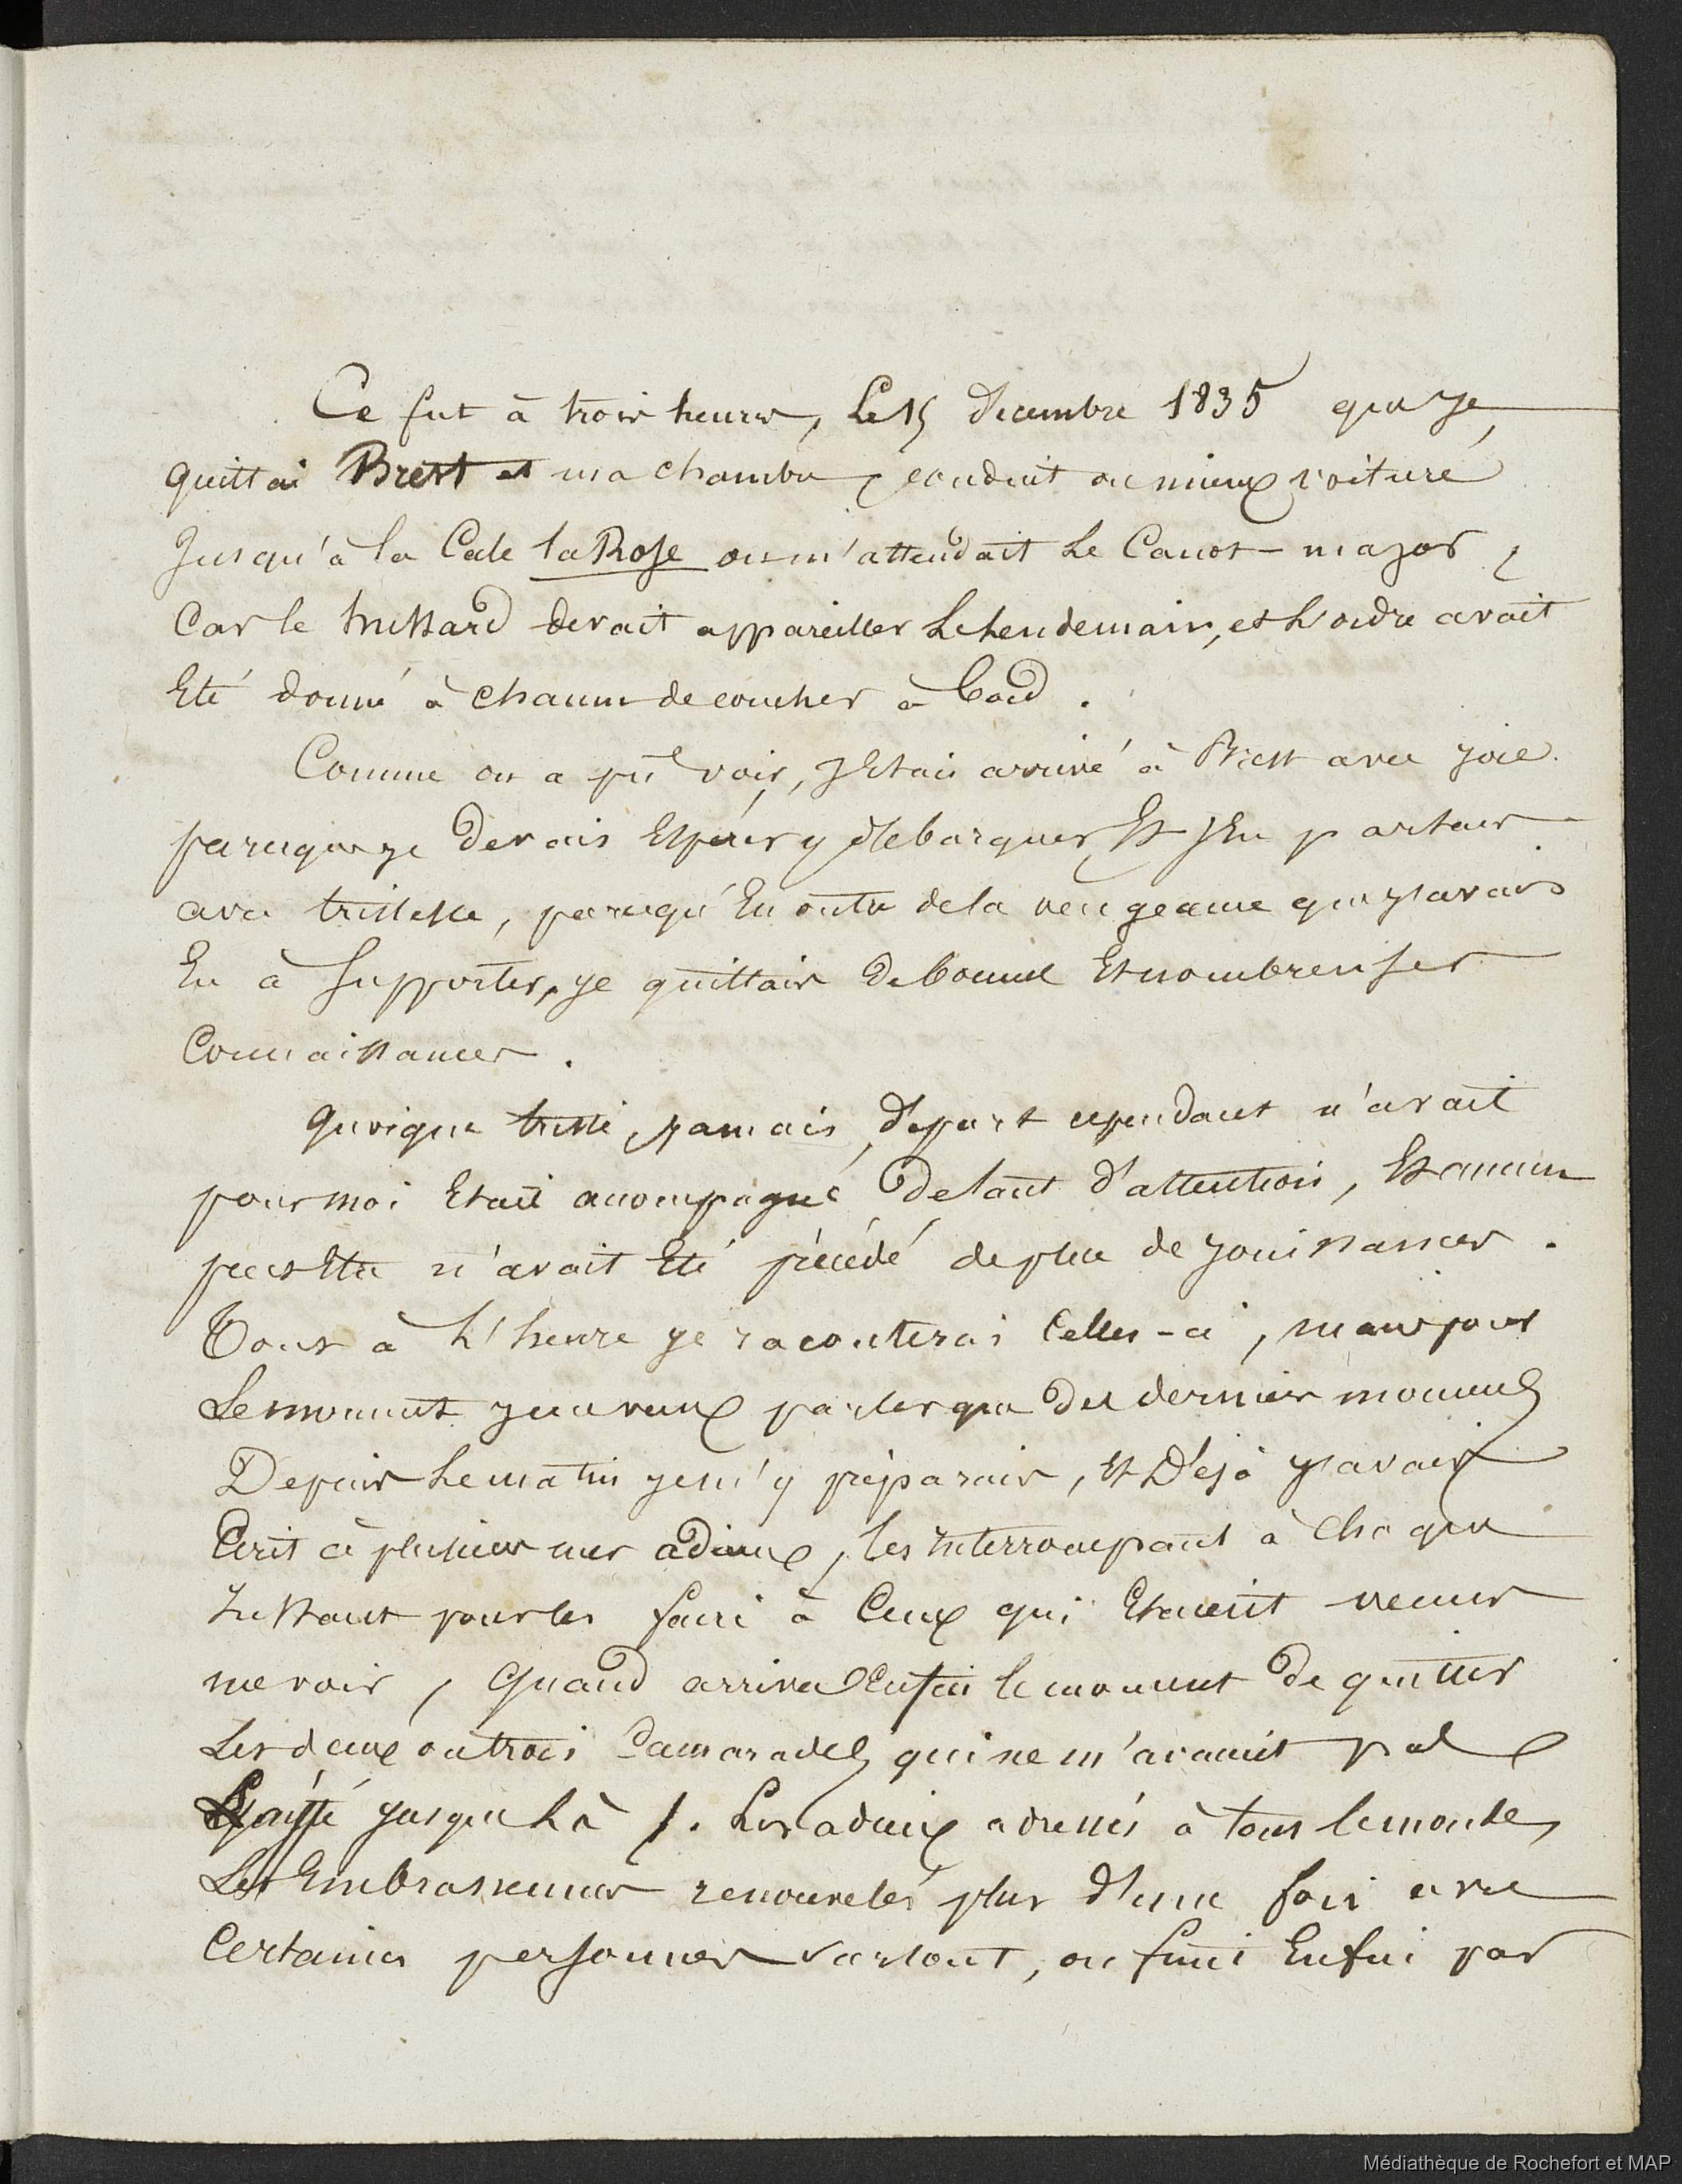 Ce fut à trois heures, Le 15 decembre 1835 que je
quittai Brest et ma chambre, conduit ou mieux voituré
Jusqu'à la Cale la Rose ou m'attendait Le Canot-major,
Car le hussard devait appareiller Le lendemain, et L'ordre avait
Eté donné à chacun de coucher à bord.
Comme on a pu voir, J'étais arrivé à Brest avec joie
parceque je devais Espérer y débarquer, Et J'En partais
avec tristesse, parcequ'En outre de la vengeance que j'avais
Eu à supporter, je quittais de bonnes Et nombreuses
Connaissances.
Quoique triste, jamais départ cependant n'avait
pour moi Etait accompagné de tant d'attention, Et aucun
peutEtre n'avait Eté précédé de plus de jouissances.
Tout à L'heure je raconterai Celles-ci, mais pour
Le moment je ne veux parler que des derniers moments
Depuis Le matin je m'y préparais, Et Déjà j'avais
Ecrit à plusieurs mes adieux, les interrompant à Chaque
Instant pour les faire à Ceux qui Etaient venus
me voir, Quand arriva Enfin le moment de quitter
Les deux ou trois Camarades qui ne m'avaient pas
Laissé jusque Là. Les adieux adressés à tous le monde,
Les Embrassements renouvelés plus d'une fois avec
Certaines personnes surtout, on finit Enfin par
Médiathèque de Rochefort et MAP